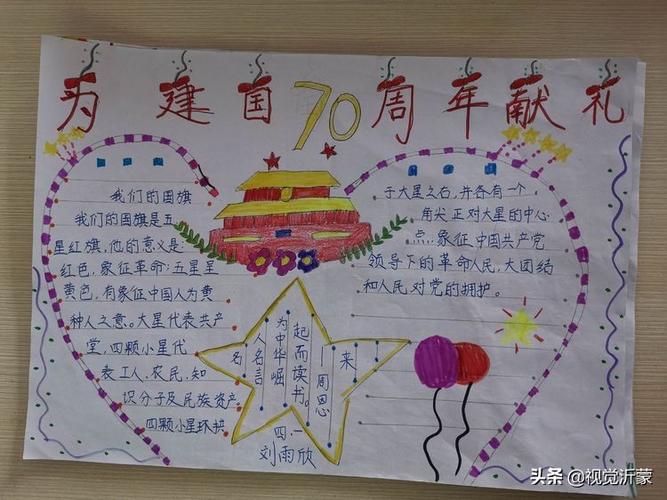 为建国70周年献礼
我们的国旗
我们的国旗是五
星红旗,他的意义是:
红色,象征革命;五星呈
黄色,有象征中国人为黄
种人之意。大星代表共产
党,四颗小星代
表工人、农民、知
识分子及民族资产
四颗小星环拱
于大星之右,并各有一个
角尖正对大星的中心
点,象征中国共产党
领导下的革命人民,大团结
和人民对党的拥护。
名
人名言
为中华崛
起而读书。
——周恩
来
四.一
刘雨欣
头条@视觉沂蒙